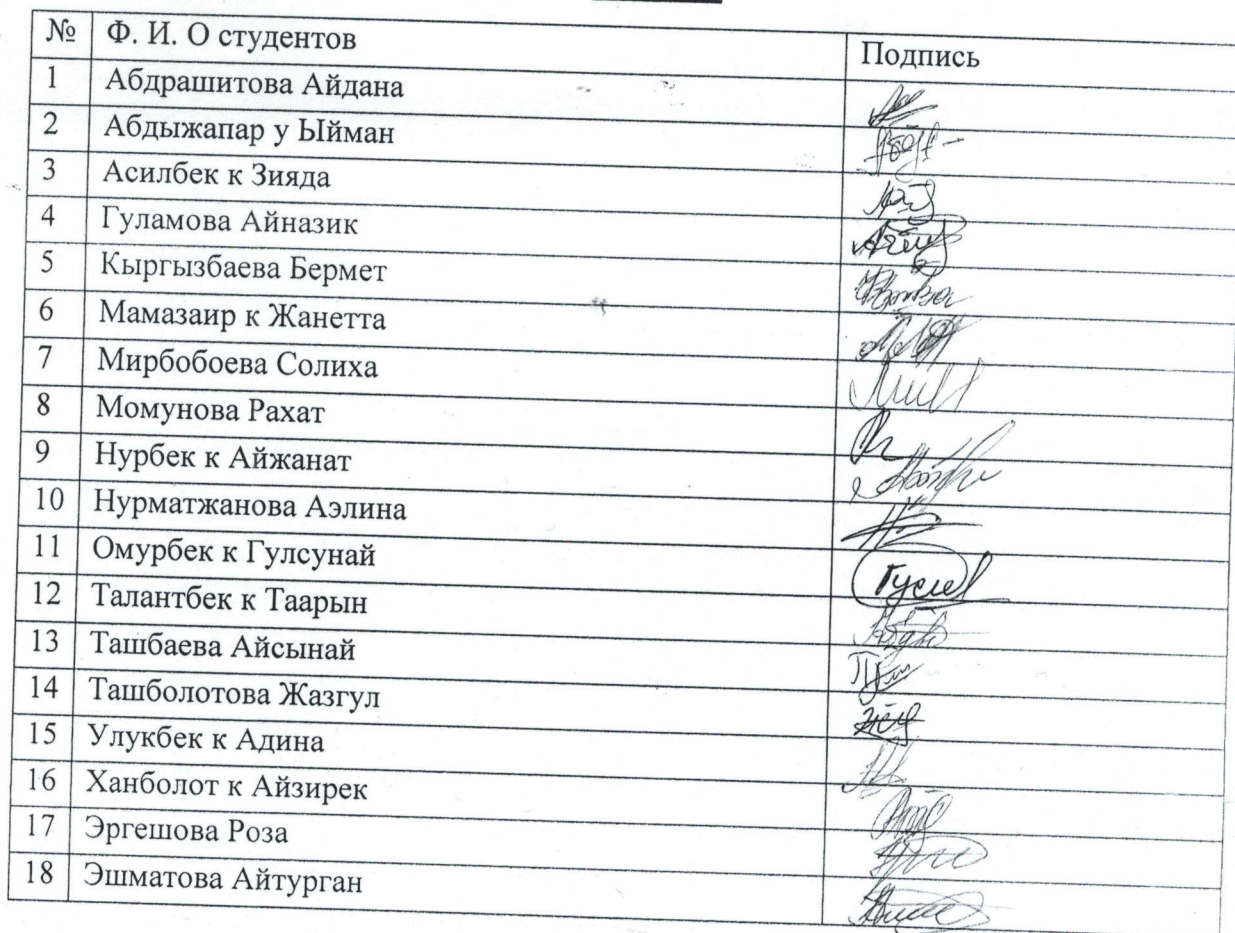 № Ф. И. О студентов Подпись
1 Абдрашитова Айдана
2 Абдыжапар у Ыйман
3 Асилбек к Зияда
4 Гуламова Айназик
5 Кыргызбаева Бермет
6 Мамазаир к Жанетта
7 Мирбобоева Солиха
8 Момунова Рахат
9 Нурбек к Айжанат
10 Нурматжанова Аэлина
11 Омурбек к Гулсунай
12 Талантбек к Таарын
13 Ташбаева Айсынай
14 Ташболотова Жазгул
15 Улукбек к Адина
16 Ханболот к Айзирек
17 Эргешова Роза
18 Эшматова Айтурган